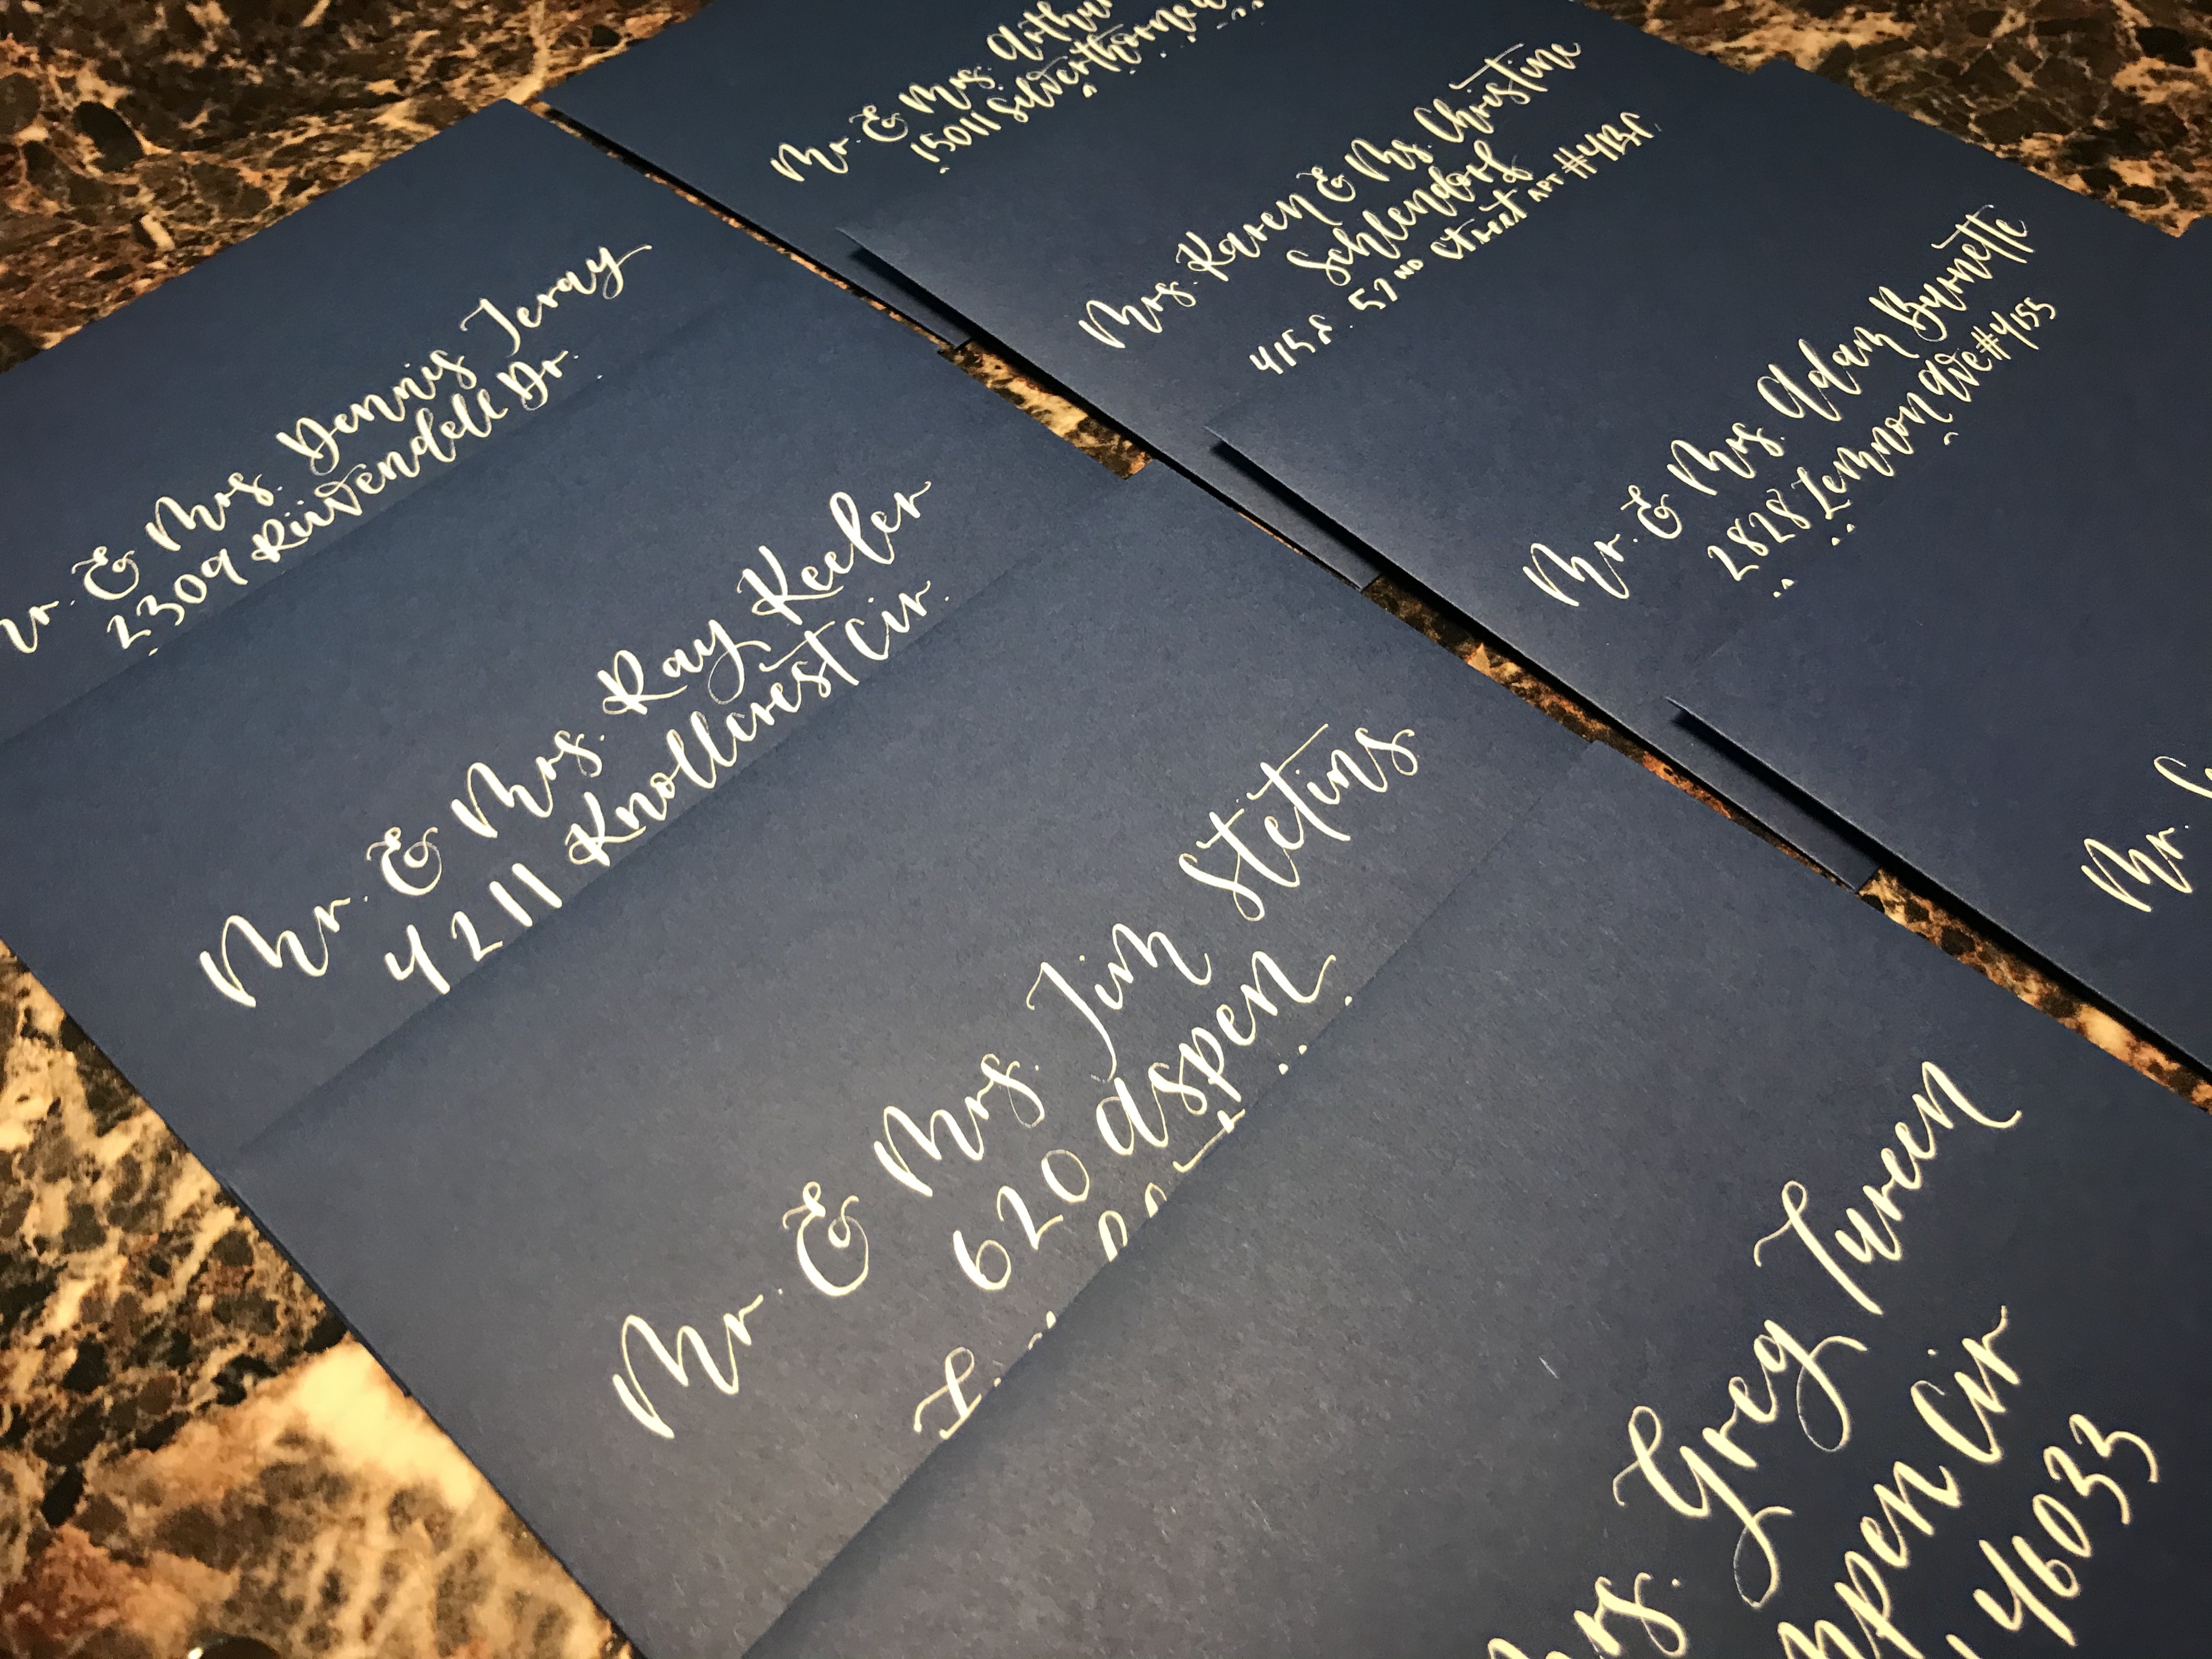 Mr. & Mrs. Arthur
15011 Silverthorne
Mrs. Karen & Ms. Christine
Schlendorf
415 E. 52ND Street APT #4BC
Mr. & Mrs. Adam Burnette
2828 Lemmon Ave #4155
Mr.
Mr. & Mrs. Dennis Jeray
2309 Rivendell Dr.
Mr. & Mrs. Ray Keeler
4211 Knollcrest Cir.
Mr. & Mrs. Jim Stetins
620 Aspen
Mrs. Greg Tureen
Cir
46033